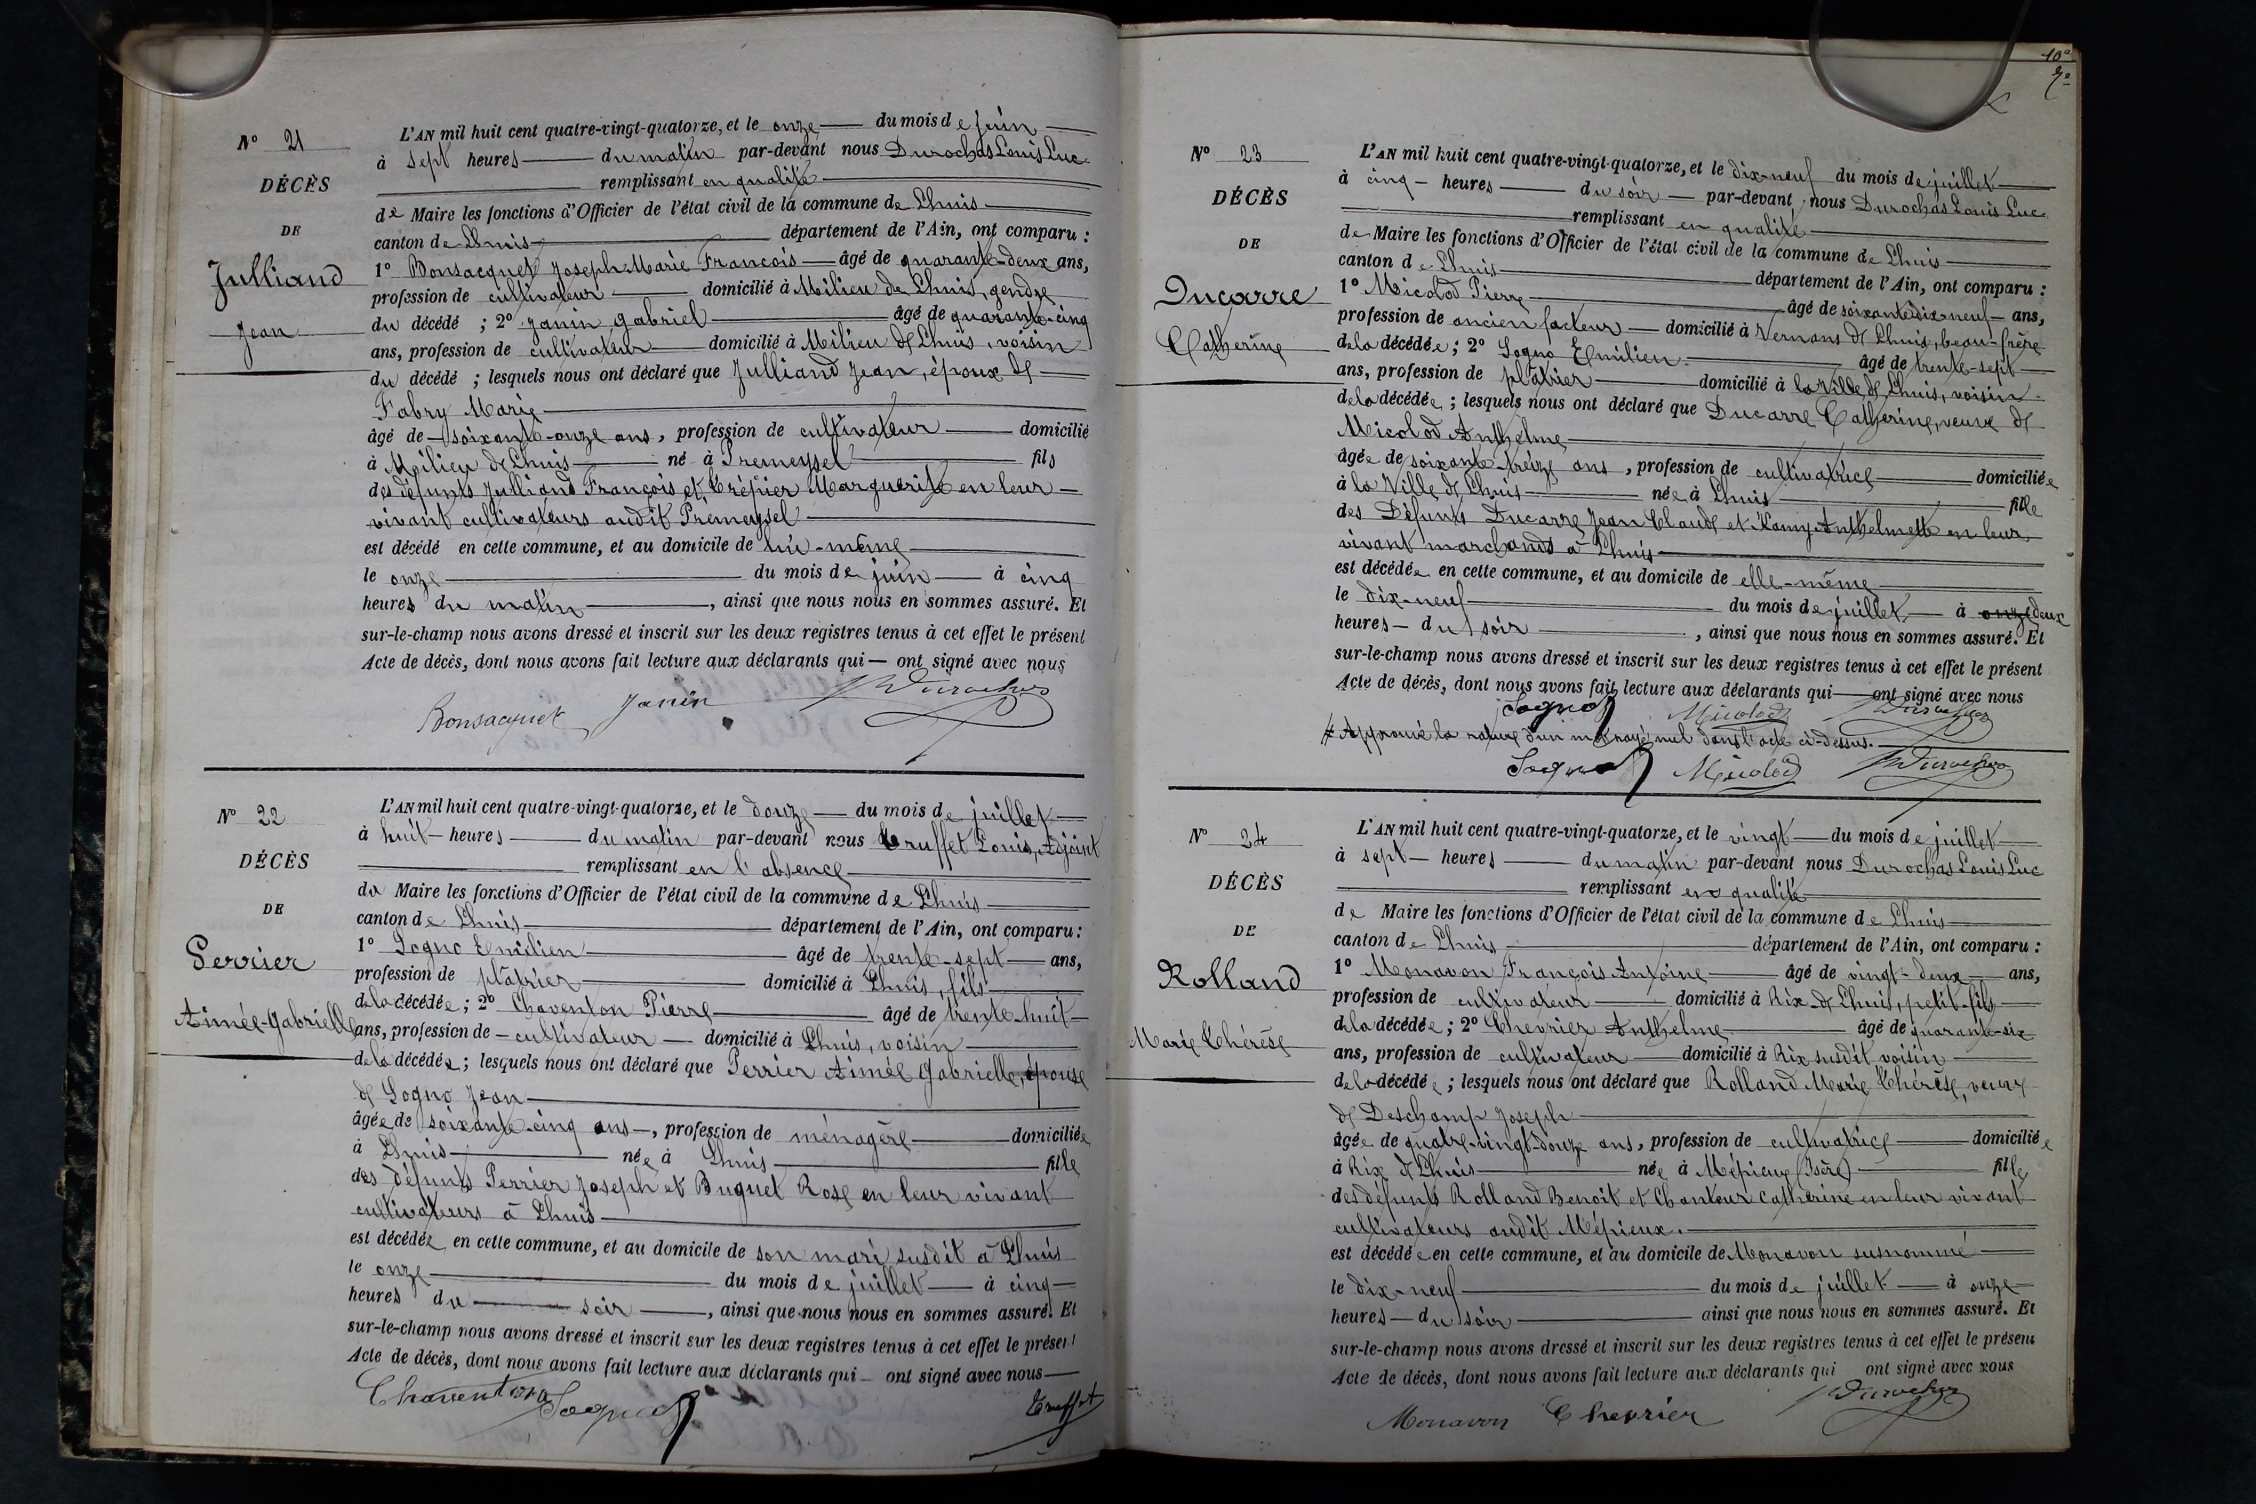 N° 21
DÉCÈS
DE
Julliand
Jean
L'AN mil huit cent quatre-vingt-quatorze, et le onze du mois de juin
à sept heures du matin par-devant nous Durochas Louis Luc
remplissant en qualité
de Maire les fonctions d'Officier de l'état civil de la commune de Lhuis
canton de Lhuis département de l'Ain, ont comparu :
1° Bonsacquet Joseph Marie François âgé de quarante-deux ans,
profession de cultivateur domicilié à Milieu de Lhuis, gendre
du décédé ; 2° Janin Gabriel âgé de quarante-cinq
ans, profession de cultivateur domicilié à Milieu de Lhuis, voisin
du décédé ; lesquels nous ont déclaré que Julliand Jean, époux de
Fabry Marie
âgé de soixante-onze ans, profession de cultivateur domicilié
à Milieu de Lhuis né à Premeysel fils
des défunts Julliand François et Crépier Marguerite en leur
vivant cultivateurs audit Premeysel
est décédé en cette commune, et au domicile de lui-même
le onze du mois de juin à cinq
heures du matin, ainsi que nous nous en sommes assuré. Et
sur-le-champ nous avons dressé et inscrit sur les deux registres tenus à cet effet le présent
Acte de décès, dont nous avons fait lecture aux déclarants qui — ont signé avec nous
Bonsacquet Janin Durochas
N° 22
DÉCÈS
DE
Perrier
Aimée-Gabrielle
L'AN mil huit cent quatre-vingt-quatorze, et le douze du mois de juillet
à huit heures du matin par-devant nous Truffet Louis, Adjoint
remplissant en l'absence
du Maire les fonctions d'Officier de l'état civil de la commune de Lhuis
canton de Lhuis département de l'Ain, ont comparu :
1° Sogno Emilien âgé de trente-sept ans,
profession de plâtrier domicilié à Lhuis, fils
de la décédée ; 2° Chaventon Pierre âgé de trente-huit
ans, profession de cultivateur domicilié à Lhuis, voisin
de la décédée ; lesquels nous ont déclaré que Perrier Aimée Gabrielle, épouse
de Sogno Jean
âgée de soixante-cinq ans, profession de ménagère domiciliée
à Lhuis née à Lhuis fille
des défunts Perrier Joseph et Buguet Rose en leur vivant
cultivateurs à Lhuis
est décédée en cette commune, et au domicile de son mari susdit à Lhuis
le onze du mois de juillet à cinq
heures du soir, ainsi que nous nous en sommes assuré. Et
sur-le-champ nous avons dressé et inscrit sur les deux registres tenus à cet effet le présent
Acte de décès, dont nous avons fait lecture aux déclarants qui — ont signé avec nous
Chaventon Sogno Truffet
10e
N° 23
DÉCÈS
DE
Ducarre
Catherine
L'AN mil huit cent quatre-vingt-quatorze, et le dix-neuf du mois de juillet
à cinq heures du soir par-devant nous Durochas Louis Luc
remplissant en qualité
de Maire les fonctions d'Officier de l'état civil de la commune de Lhuis
canton de Lhuis département de l'Ain, ont comparu :
1° Micolod Pierre âgé de soixante dix-neuf ans,
profession de ancien facteur domicilié à Vernans de Lhuis, beau-frère
de la décédée ; 2° Sogno Emilien âgé de trente-sept
ans, profession de plâtrier domicilié à la Ville de Lhuis, voisin
de la décédée ; lesquels nous ont déclaré que Ducarre Catherine, veuve de
Micolod Anthelme
âgée de soixante-treize ans, profession de cultivatrice domiciliée
à la Ville de Lhuis née à Lhuis fille
des Défunts Ducarre Jean Claude et Anthelmette en leur
vivant marchands à Lhuis
est décédée en cette commune, et au domicile de elle-même
le dix-neuf du mois de juillet à onze deux
heures du soir, ainsi que nous nous en sommes assuré. Et
sur-le-champ nous avons dressé et inscrit sur les deux registres tenus à cet effet le présent
Acte de décès, dont nous avons fait lecture aux déclarants qui — ont signé avec nous
Sogno Micolod Durochas
# Approuvé la rature d'un mot rayé nul dans l'acte ci-dessus.
Sogno Micolod Durochas
N° 24
DÉCÈS
DE
Rolland
Marie Thérèse
L'AN mil huit cent quatre-vingt-quatorze, et le vingt du mois de juillet
à sept heures du matin par-devant nous Durochas Louis Luc
remplissant en qualité
de Maire les fonctions d'Officier de l'état civil de la commune de Lhuis
canton de Lhuis département de l'Ain, ont comparu :
1° Monavon François Antoine âgé de vingt-deux ans,
profession de cultivateur domicilié à Rix de Lhuis, petit-fils
de la décédée ; 2° Chevrier Anthelme âgé de quarante-six
ans, profession de cultivateur domicilié à Rix susdit voisin
de la décédée ; lesquels nous ont déclaré que Rolland Marie Thérèse, veuve
de Deschamp Joseph
âgée de quatre-vingt-douze ans, profession de cultivatrice domiciliée
à Rix de Lhuis née à Mépieux (Isère) fille
des défunts Rolland Benoit et Chanteur Catherine en leur vivant
cultivateurs audit Mépieux.
est décédée en cette commune, et au domicile de Monavon susnommé
le dix-neuf du mois de juillet à onze
heures du soir ainsi que nous nous en sommes assuré. Et
sur-le-champ nous avons dressé et inscrit sur les deux registres tenus à cet effet le présent
Acte de décès, dont nous avons fait lecture aux déclarants qui ont signé avec nous
Monavon Chevrier Durochas